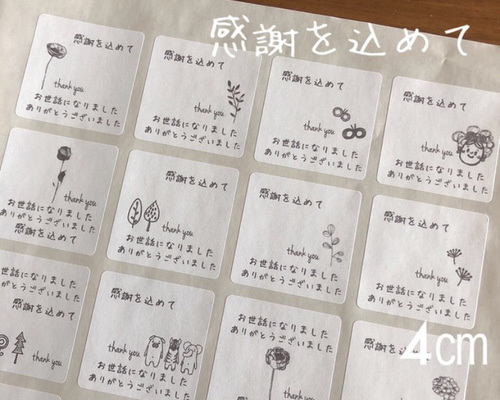 感謝を込めて
感謝を込めて
thank you
お世話になりました
ありがとうございました
感謝を込めて
thank you
お世話になりました
ありがとうございました
感謝を込めて
thank you
お世話になりました
ありがとうございました
感謝を込めて
thank you
お世話になりました
ありがとうございました
thank you
お世話になりました
ありがとうございました
感謝を込めて
感謝を込めて
thank you
お世話になりました
ありがとうございました
感謝を込めて
thank you
お世話になりました
ありがとうございました
感謝を込めて
thank you
お世話になりました
ありがとうございました
お世話になりました
ありがとうございました
感謝を込めて
thank you
感謝を込めて
thank you
お世話になりました
ありがとうございました
お世話になりました
ありがとうございました
感謝を込めて
thank you
感謝を込めて
4cm